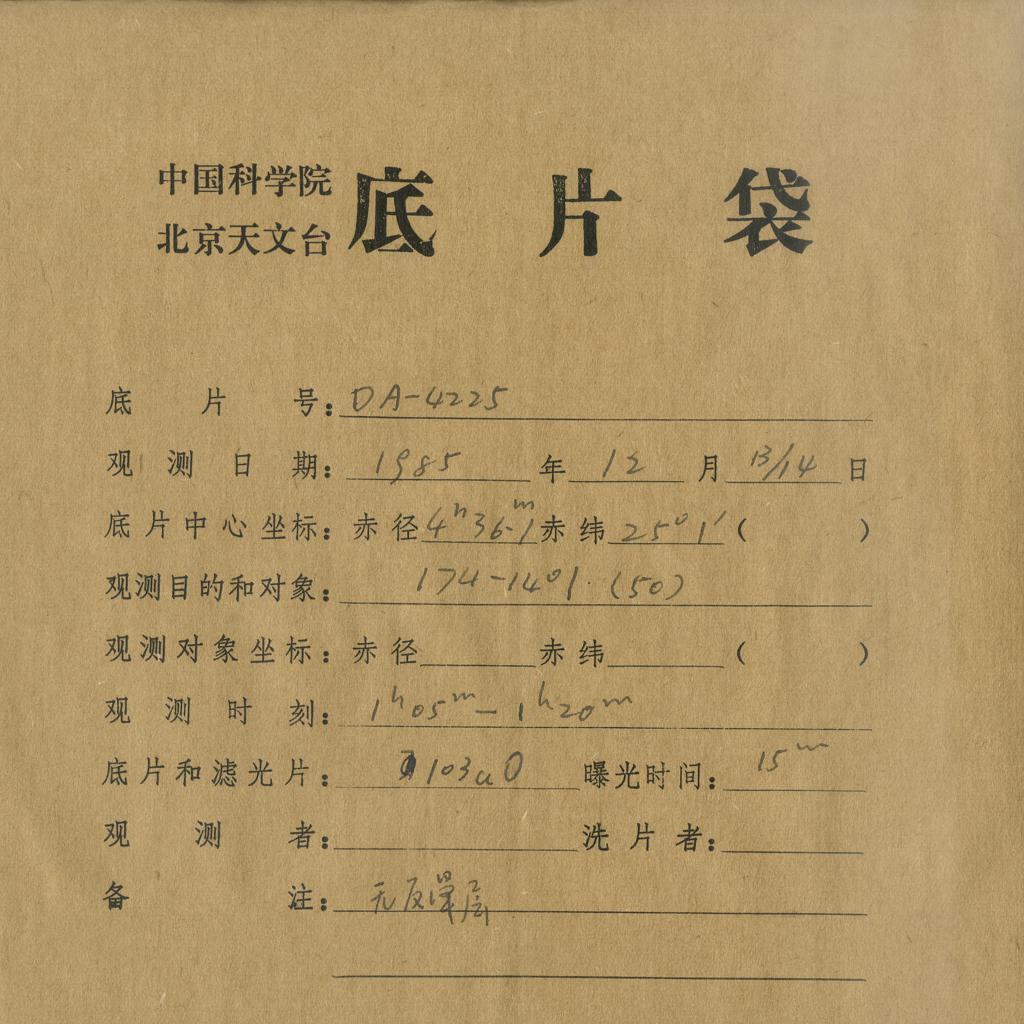 中国科学院
北京天文台
底片袋
底片号：DA-4225
观测日期：1985年12月13/14日
底片中心坐标：赤径4ʰ36ᵐ.1赤纬25°1′（ ）
观测目的和对象：174-1401.(50)
观测对象坐标：赤径 赤纬 （ ）
观测时刻：1ʰ05ᵐ—1ʰ20ᵐ
底片和滤光片：103aO 曝光时间：15ᵐ
观测者： 洗片者：
备注：无反晕层